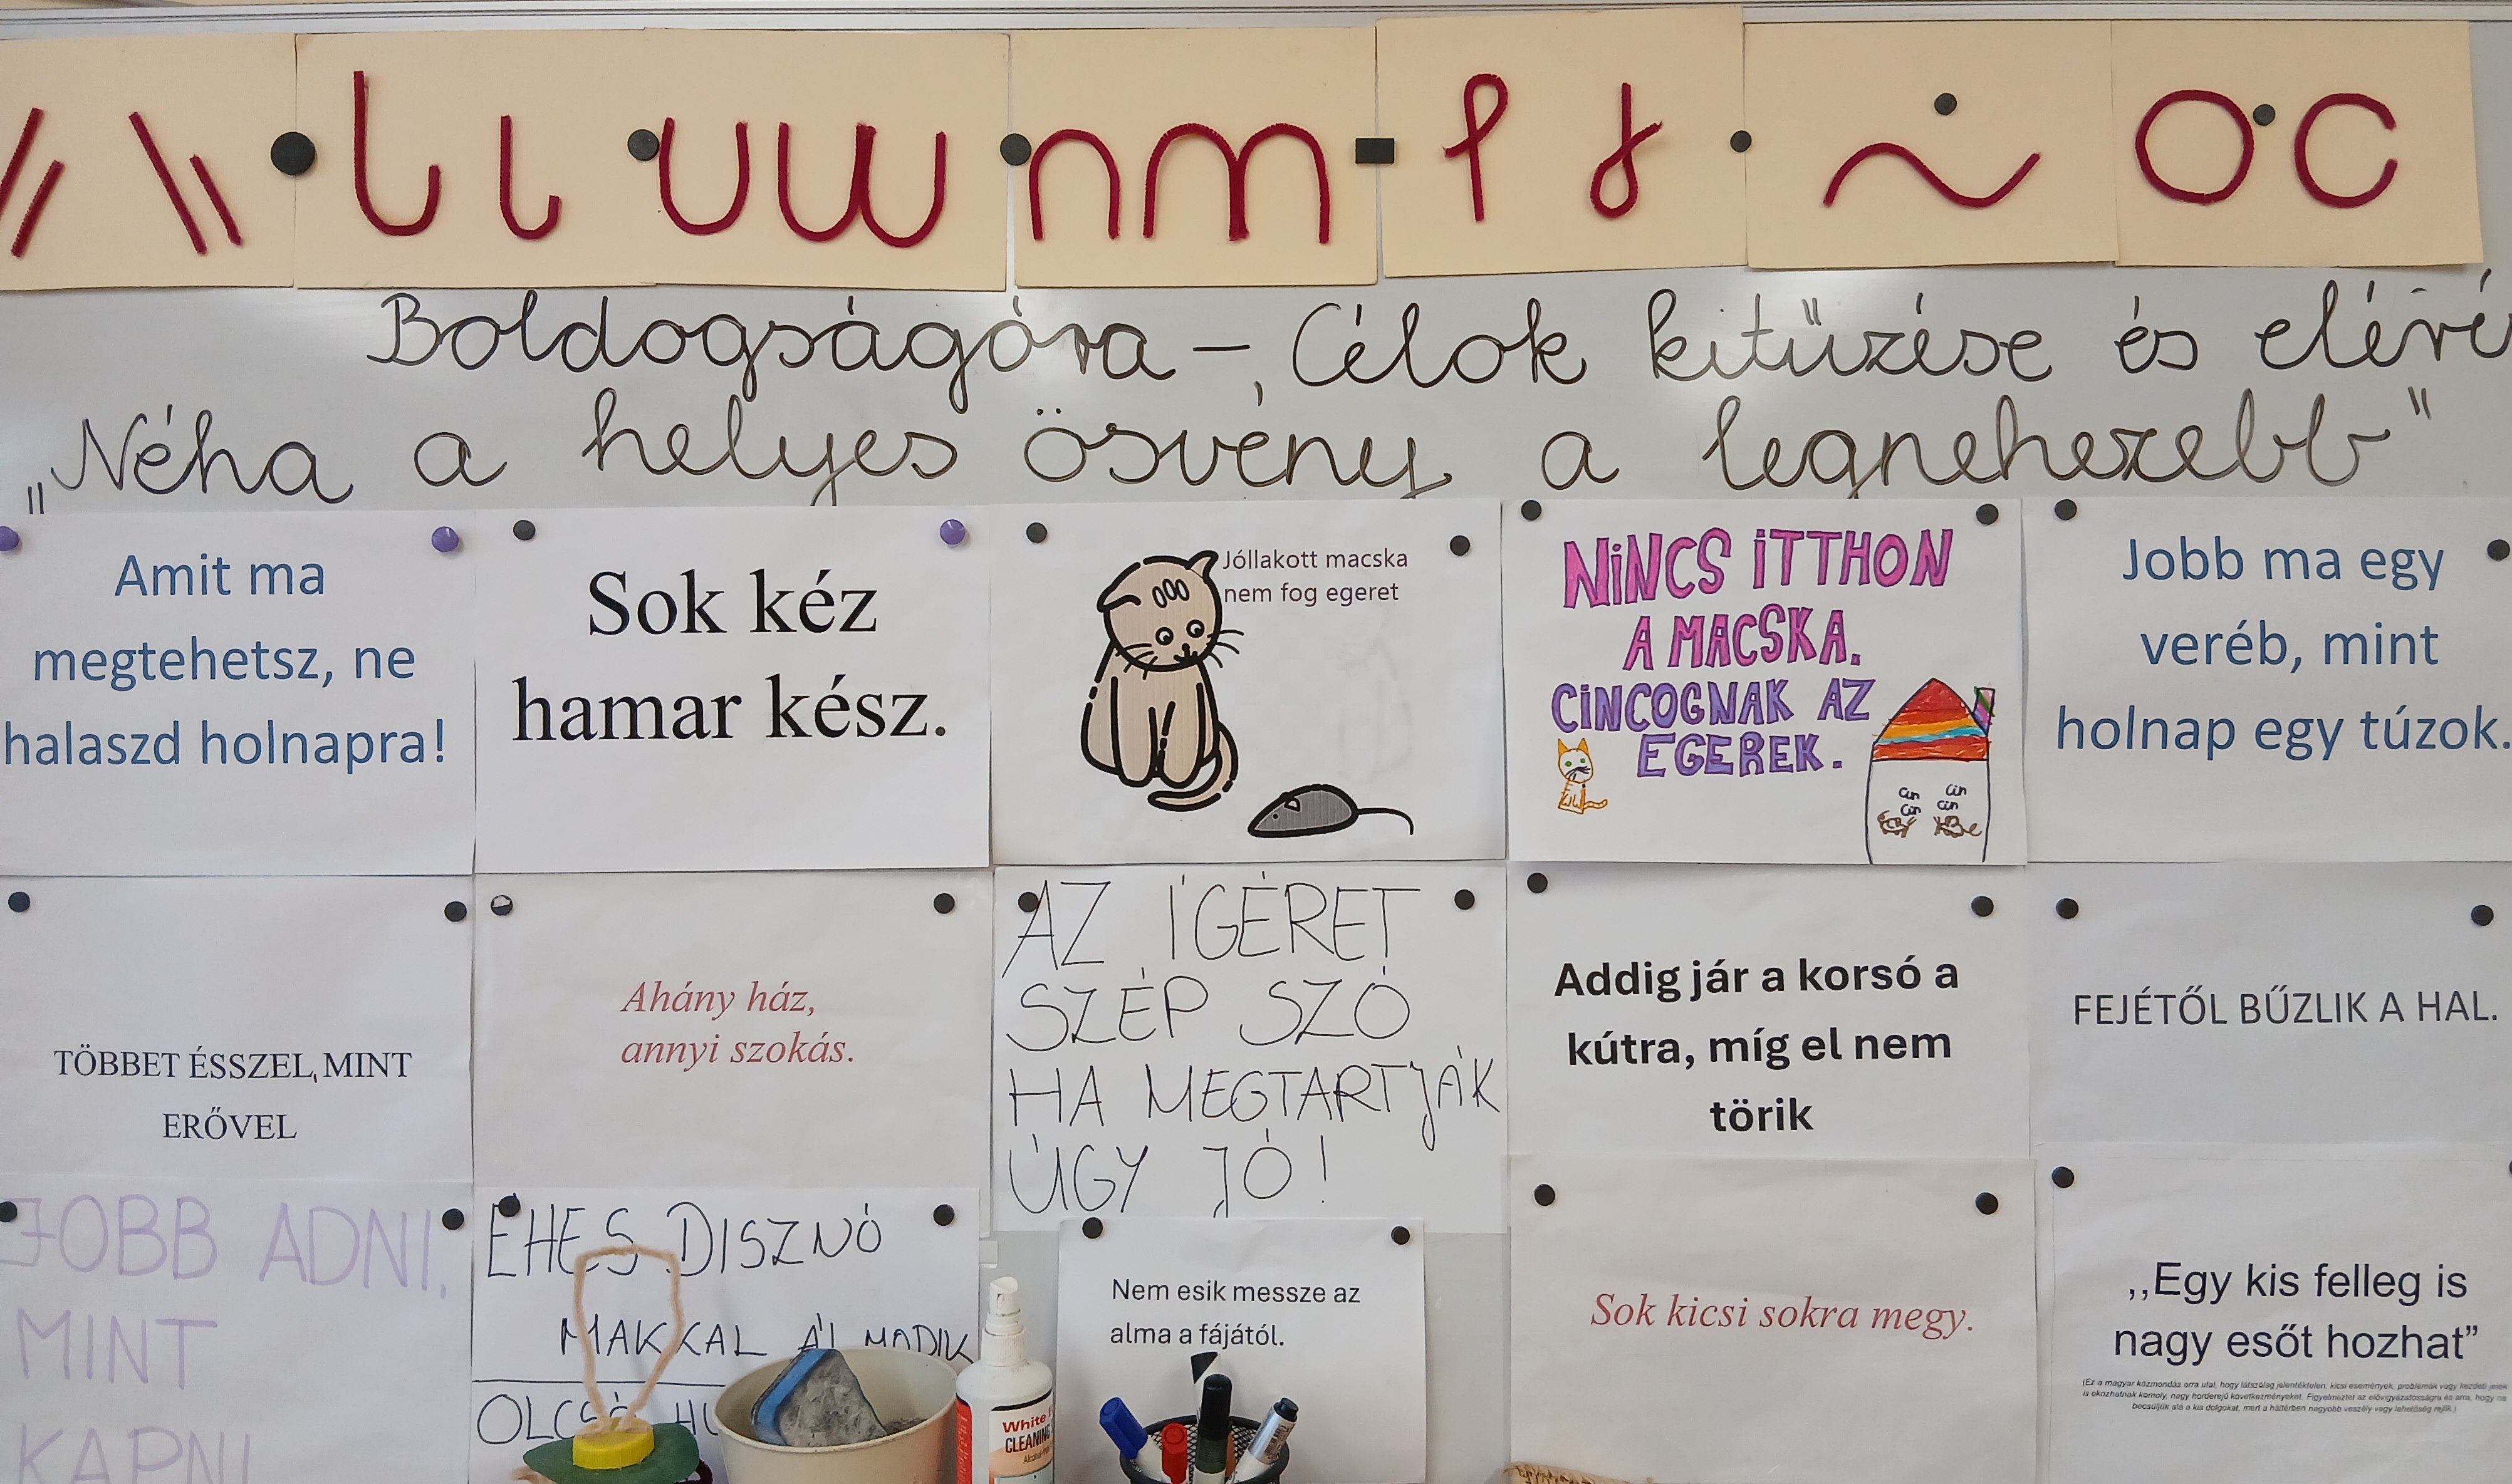 Boldogságóra – Célok kitűzése és eléré
„Néha a helyes ösvény a legnehezebb"
Amit ma
megtehetsz, ne
halaszd holnapra!
Sok kéz
hamar kész.
Jóllakott macska
nem fog egeret
NINCS ITTHON
A MACSKA.
CINCOGNAK AZ
EGEREK.
cin cin
cin cin
Jobb ma egy
veréb, mint
holnap egy túzok.
TÖBBET ÉSSZEL, MINT
ERŐVEL
Ahány ház,
annyi szokás.
AZ ÍGÉRET
SZÉP SZÓ
HA MEGTARTJÁK
ÚGY JÓ!
Addig jár a korsó a
kútra, míg el nem
törik
FEJÉTŐL BŰZLIK A HAL.
JOBB ADNI,
MINT
KAPNI
ÉHES DISZNÓ
MAKKAL ÁLMODIK
OLCSÓ HÚ
Nem esik messze az
alma a fájától.
Sok kicsi sokra megy.
,,Egy kis felleg is
nagy esőt hozhat”
(Ez a magyar közmondás arra utal, hogy látszólag jelentéktelen, kicsi események, problémák vagy kezdeti jelek
is okozhatnak komoly, nagy horderejű következményeket. Figyelmeztet az elővigyázatosságra és arra, hogy ne
becsüljük alá a kis dolgokat, mert a háttérben nagyobb veszély vagy lehetőség rejlik.)
White
CLEANING